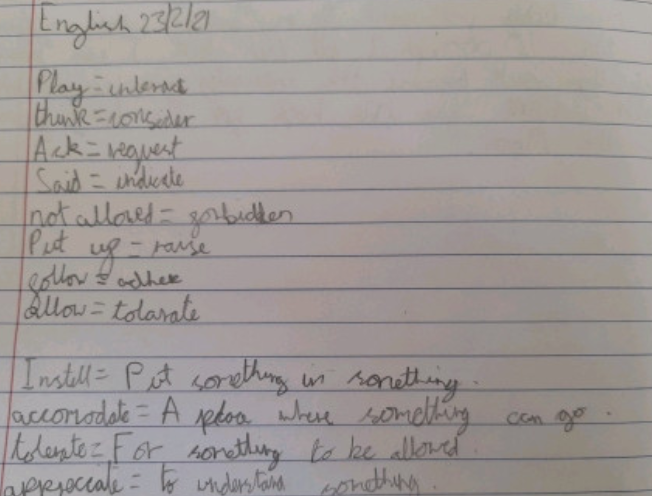 English 23/2/21
Play = interact
think = consider
Ask = request
Said = indicate
not allowed = forbidden
Put up = raise
follow = adhere
allow = tolarate
Instell = Put something in something.
accomodate = A place where something can go.
tolerate = For something to be allowed.
appreccate = to understand something.